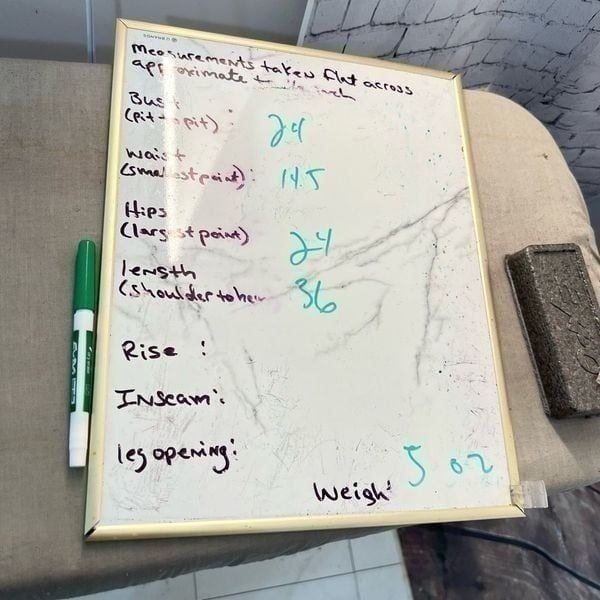 Measurements taken flat across
approximate + 1/2 inch
Bust
(pit to pit) : 24
Waist
(smallest point): 14.5
Hips
(largest point) 24
length
(shoulder to hem 36
Rise :
Inseam:
leg opening:
Weigh: 5 oz
EXPO